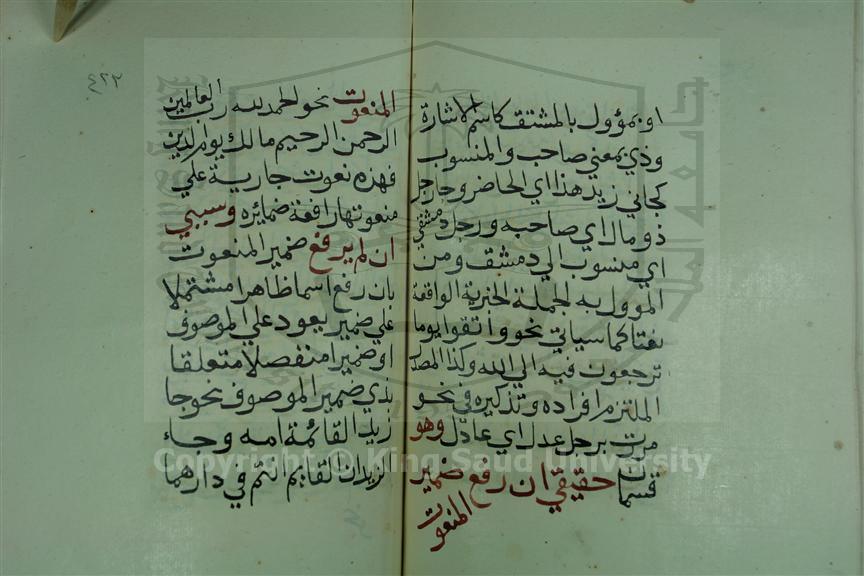 او بمؤول بالمشتق كاسم الاشارة
وذي بمعني صاحب والمنسوب
كجاني زيد هذا اي الحاضر وجا رجل
ذو مال اي صاحبه ورجل دمشقي
اي منسوب الي دمشق ومن
الموول به الجملة الخبرية الواقعة
نعتا كما سياتي نحو واتقوا يوما
ترجعون فيه الي الله وكذا المصدر
الملتزم افراده وتذكيره في نحو
مررت برجل عدل اي عادل وهو
قسمان حقيقي ان رفع ضمير
المنعوت
٤٢٢
المنعوت نحو الحمد لله رب العالمين
الرحمن الرحيم مالك يوم الدين
فهذه نعوت جارية علي
منعوتها رافعة ضمائره وسببي
ان لم يرفع ضمير المنعوت
بان رفع اسما ظاهرا مشتملا
علي ضمير يعود علي الموصوف
او ضميرا منفصلا متعلقا
بذي ضمير الموصوف نحو جا
زيد القائمة امه وجاء
الزيدان القايم انتم في دارهما
Copyright © King Saud University